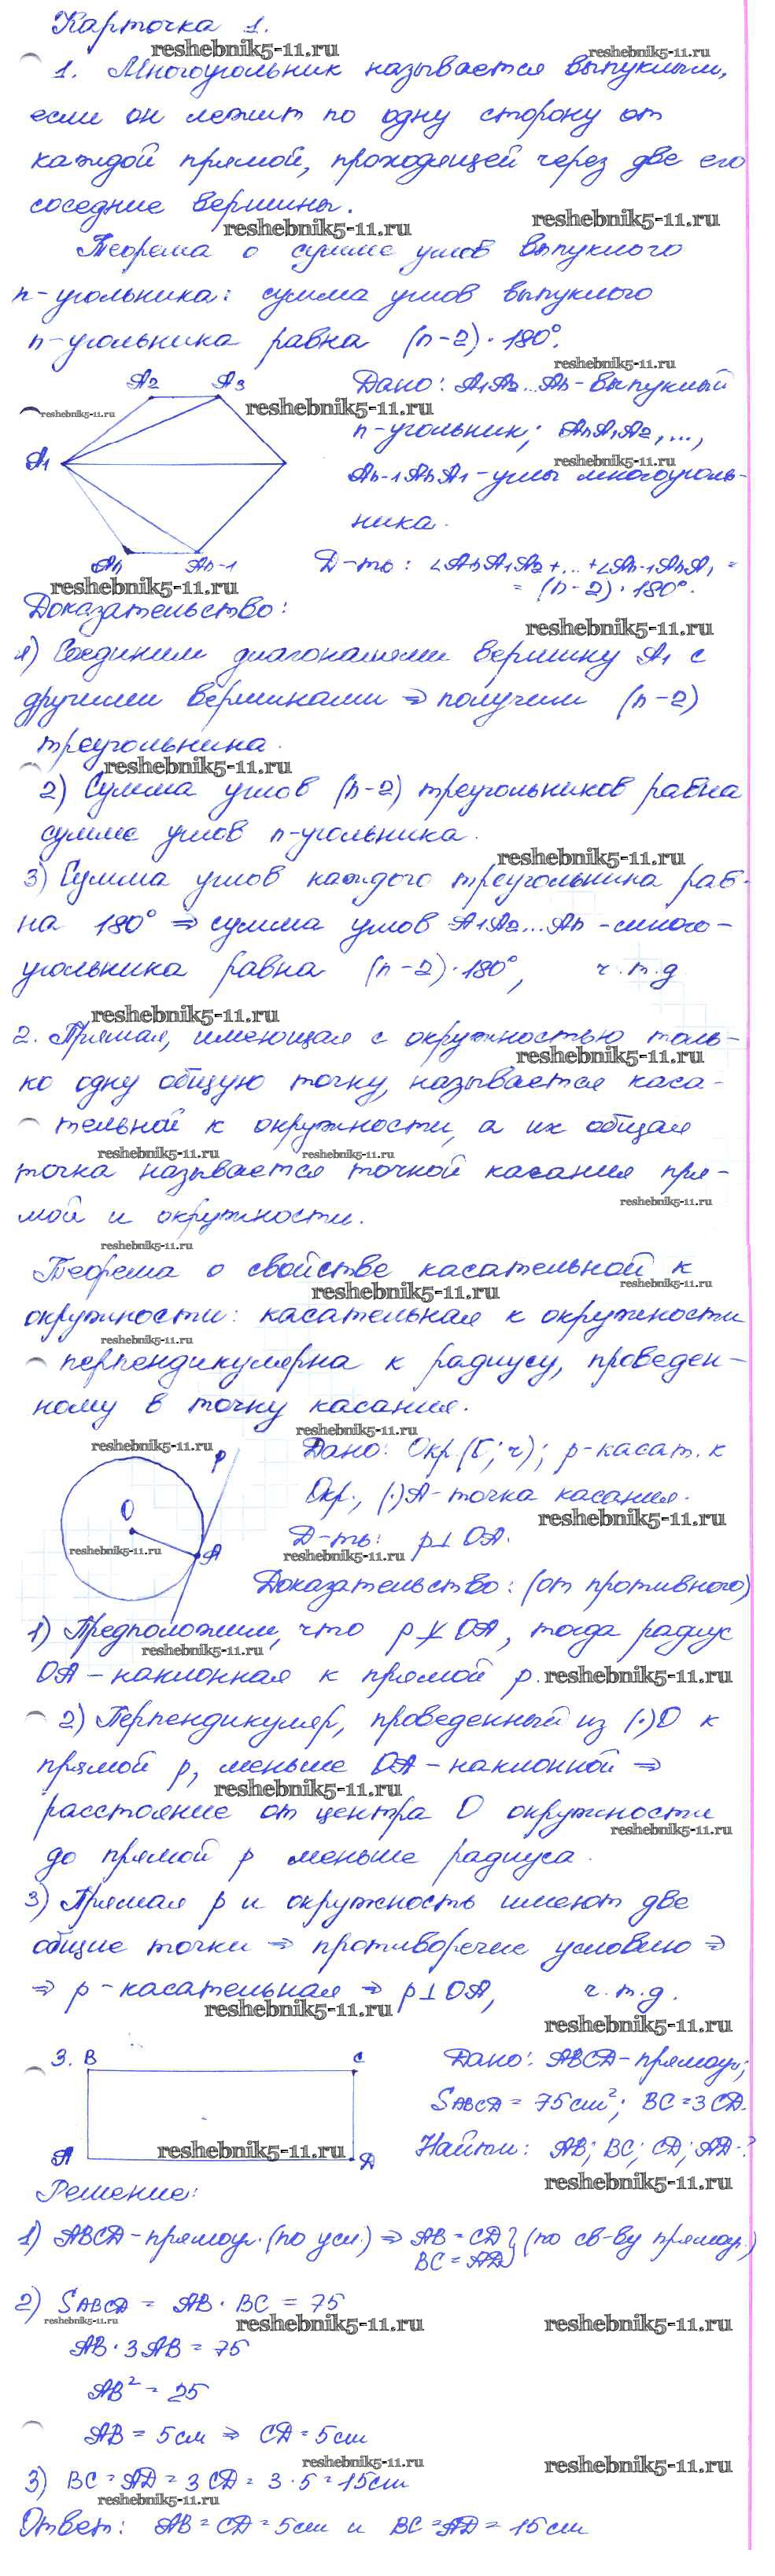 Карточка 1.
reshebnik5-11.ru
reshebnik5-11.ru
1. Многоугольник называется выпуклым,
если он лежит по одну сторону от
каждой прямой, проходящей через две его
соседние вершины.
reshebnik5-11.ru
reshebnik5-11.ru
Теорема о сумме углов выпуклого
n-угольника: сумма углов выпуклого
n-угольника равна (n-2)·180°.
reshebnik5-11.ru
A2 A3
Дано: A1A2...An-выпуклый
reshebnik5-11.ru
reshebnik5-11.ru
n-угольник; AnA1A2,...,
reshebnik5-11.ru
A1
An-1AnA1-углы многоуголь-
ника.
An An-1
Д-ть: ∠AnA1A2+...+∠An-1AnA1 =
= (n-2)·180°.
reshebnik5-11.ru
Доказательство:
reshebnik5-11.ru
1) Соединим диагоналями вершину A1 с
другими вершинами ⇒ получим (n-2)
треугольника.
reshebnik5-11.ru
2) Сумма углов (n-2) треугольников равна
сумме углов n-угольника.
reshebnik5-11.ru
3) Сумма углов каждого треугольника рав-
на 180° ⇒ сумма углов A1A2...An -много-
угольника равна (n-2)·180°, ч.т.д
reshebnik5-11.ru
2. Прямая, имеющая с окружностью толь-
reshebnik5-11.ru
ко одну общую точку, называется каса-
тельной к окружности, а их общая
reshebnik5-11.ru
reshebnik5-11.ru
точка называется точкой касания пря-
reshebnik5-11.ru
мой и окружности.
reshebnik5-11.ru
Теорема о свойстве касательной к
reshebnik5-11.ru
reshebnik5-11.ru
окружности: касательная к окружности
reshebnik5-11.ru
перпендикулярна к радиусу, проведен-
ному в точку касания.
reshebnik5-11.ru
reshebnik5-11.ru
p
Дано: Окр.(O; r); p-касат. к
O
Окр., (·)A-точка касания.
reshebnik5-11.ru
Д-ть: p⊥OA.
reshebnik5-11.ru
A
reshebnik5-11.ru
Доказательство: (от противного)
1) Предположим, что p⊥̸OA, тогда радиус
reshebnik5-11.ru
OA-наклонная к прямой p.
reshebnik5-11.ru
2) Перпендикуляр, проведенный из (·)O к
прямой p, меньше OA-наклонной ⇒
reshebnik5-11.ru
расстояние от центра O окружности
reshebnik5-11.ru
до прямой p меньше радиуса.
3) Прямая p и окружность имеют две
общие точки ⇒ противоречие условию ⇒
⇒ p-касательная ⇒ p⊥OA, ч.т.д.
reshebnik5-11.ru
reshebnik5-11.ru
3. B C
Дано: ABCD-прямоуг;
SABCD = 75см²; BC=3CD.
Найти: AB; BC; CD; AD-?
A D
reshebnik5-11.ru
reshebnik5-11.ru
Решение:
1) ABCD-прямоуг.(по усл.) ⇒ AB=CD} (по св-ву прямоуг.)
BC=AD
2) SABCD = AB·BC = 75
reshebnik5-11.ru
reshebnik5-11.ru
reshebnik5-11.ru
AB·3AB=75
AB²=25
AB=5см ⇒ CD=5см
reshebnik5-11.ru
reshebnik5-11.ru
3) BC=AD=3CD=3·5=15см
reshebnik5-11.ru
Ответ: AB=CD=5см и BC=AD=15см